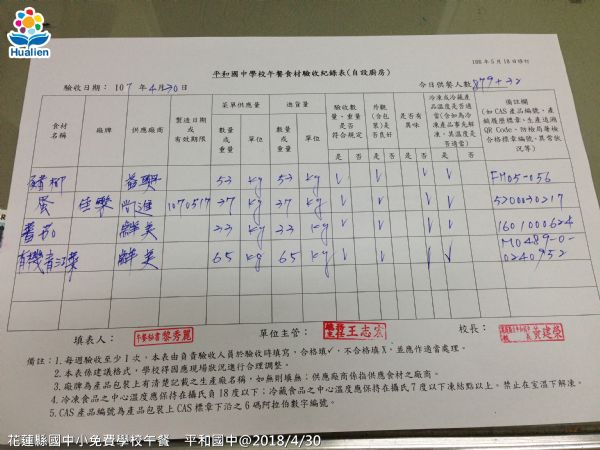 Hualien
106年5月18日修訂
平和國中學校午餐食材驗收紀錄表(自設廚房)
驗收日期：107年4月30日
今日供餐人數：879+32
食材名稱 廠牌 供應廠商 製造日期或有效期限 菜單供應量 進貨量 驗收數量、重量是否符合規定 外觀(含包裝)是否良好 是否有異味 冷凍或冷藏產品溫度是否適當(含如為冷凍產品事先解凍，其溫度是否適當) 備註欄(如CAS產品編號、產銷履歷標章、生產追溯QR Code、防檢局屠檢合格標章編號、異常狀況等)
數量或重量 單位 數量或重量 單位 是 否 是 否 是 否 是 否
豬柳 益興 53 kg 53 kg √ √ √ √ FM05-056
蛋 1070517 37 kg 37 kg √ √ √ √ 5200030217
蕃茄 鮮美 33 kg 33 kg √ √ √ 1601000624
有機青江菜 鮮美 65 kg 65 kg √ √ √ √ M0489-0-0240952
填表人： 午餐秘書黎秀麗 單位主管： 總務主任王志宏 校長： 黃建榮
備註：1.每週驗收至少1次，本表由負責驗收人員於驗收時填寫，合格填√，不合格填X，並應作適當處理。
2.本表係建議格式，學校得因應現場狀況進行合理調整。
3.廠牌為產品包裝上有清楚記載之生產廠名稱，如無則填無；供應廠商係指供應食材之廠商。
4.冷凍食品之中心溫度應保持在攝氏負18度以下；冷藏食品之中心溫度應保持在攝氏7度以下凍結點以上。禁止在室溫下解凍。
5.CAS產品編號為產品包裝上CAS標章下沿之6碼阿拉伯數字編號。
花蓮縣國中小免費學校午餐 平和國中@2018/4/30